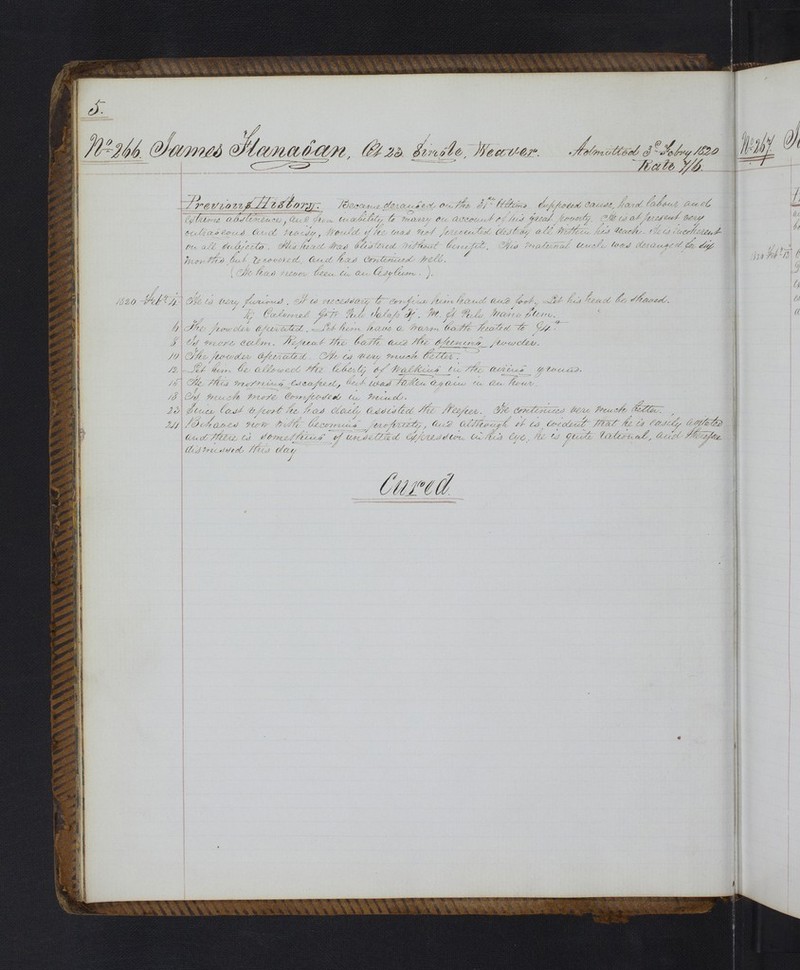 5.
No. 266. James Flanagan, Æt 23. Single, Weaver. Admitted 3d Febry 1820
Rate 7/6.
Previous History. Became deranged on the Ultimo. Supposed cause, hard labour and
extreme abstinence, and from inability to marry on account of his great poverty. He is at present very
outrageous and noisy, would if he was not prevented destroy all within his reach. He is incoherent
on all subjects. His head was blistered without benefit. His maternal uncle was deranged for six
months but recovered, and has continued well.
(He has never been in an Asylum.).
1820 Feby 4 He is very furious. It is necessary to confine him hand and foot. Let his head be shaved.
Calomel Pulv Jalap M. ft Pulv Mane Sum.
6 The powder operated. Let him have a warm bath heated to 94°
8 Is more calm. Repeat the bath and the opening powder.
10 The powder operated. He is very much better.
12 Let him be allowed the liberty of walking in the airing grounds.
15 He this morning escaped, but was taken again in an hour.
18 Is much more composed in mind.
22 Since last report he has daily assisted the Keeper. He continues very much better.
24 Behaves now with becoming propriety, and although it is evident that he is easily agitated
and there is something of unsettled expression in his eye, he is quite rational, and therefore
dismissed this day
Cured.
No. 267
1820 Feby